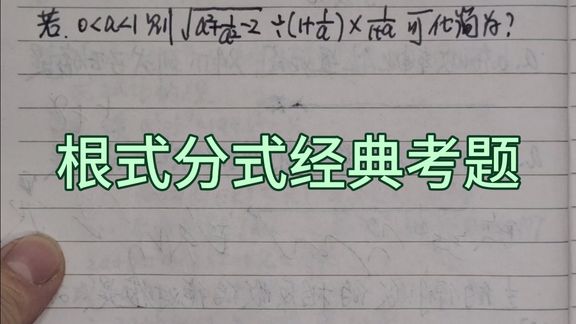 若.0<a<1则 √(a²+1/a²-2) ÷(1+1/a)×1/(1+a) 可化简为?
根式分式经典考题